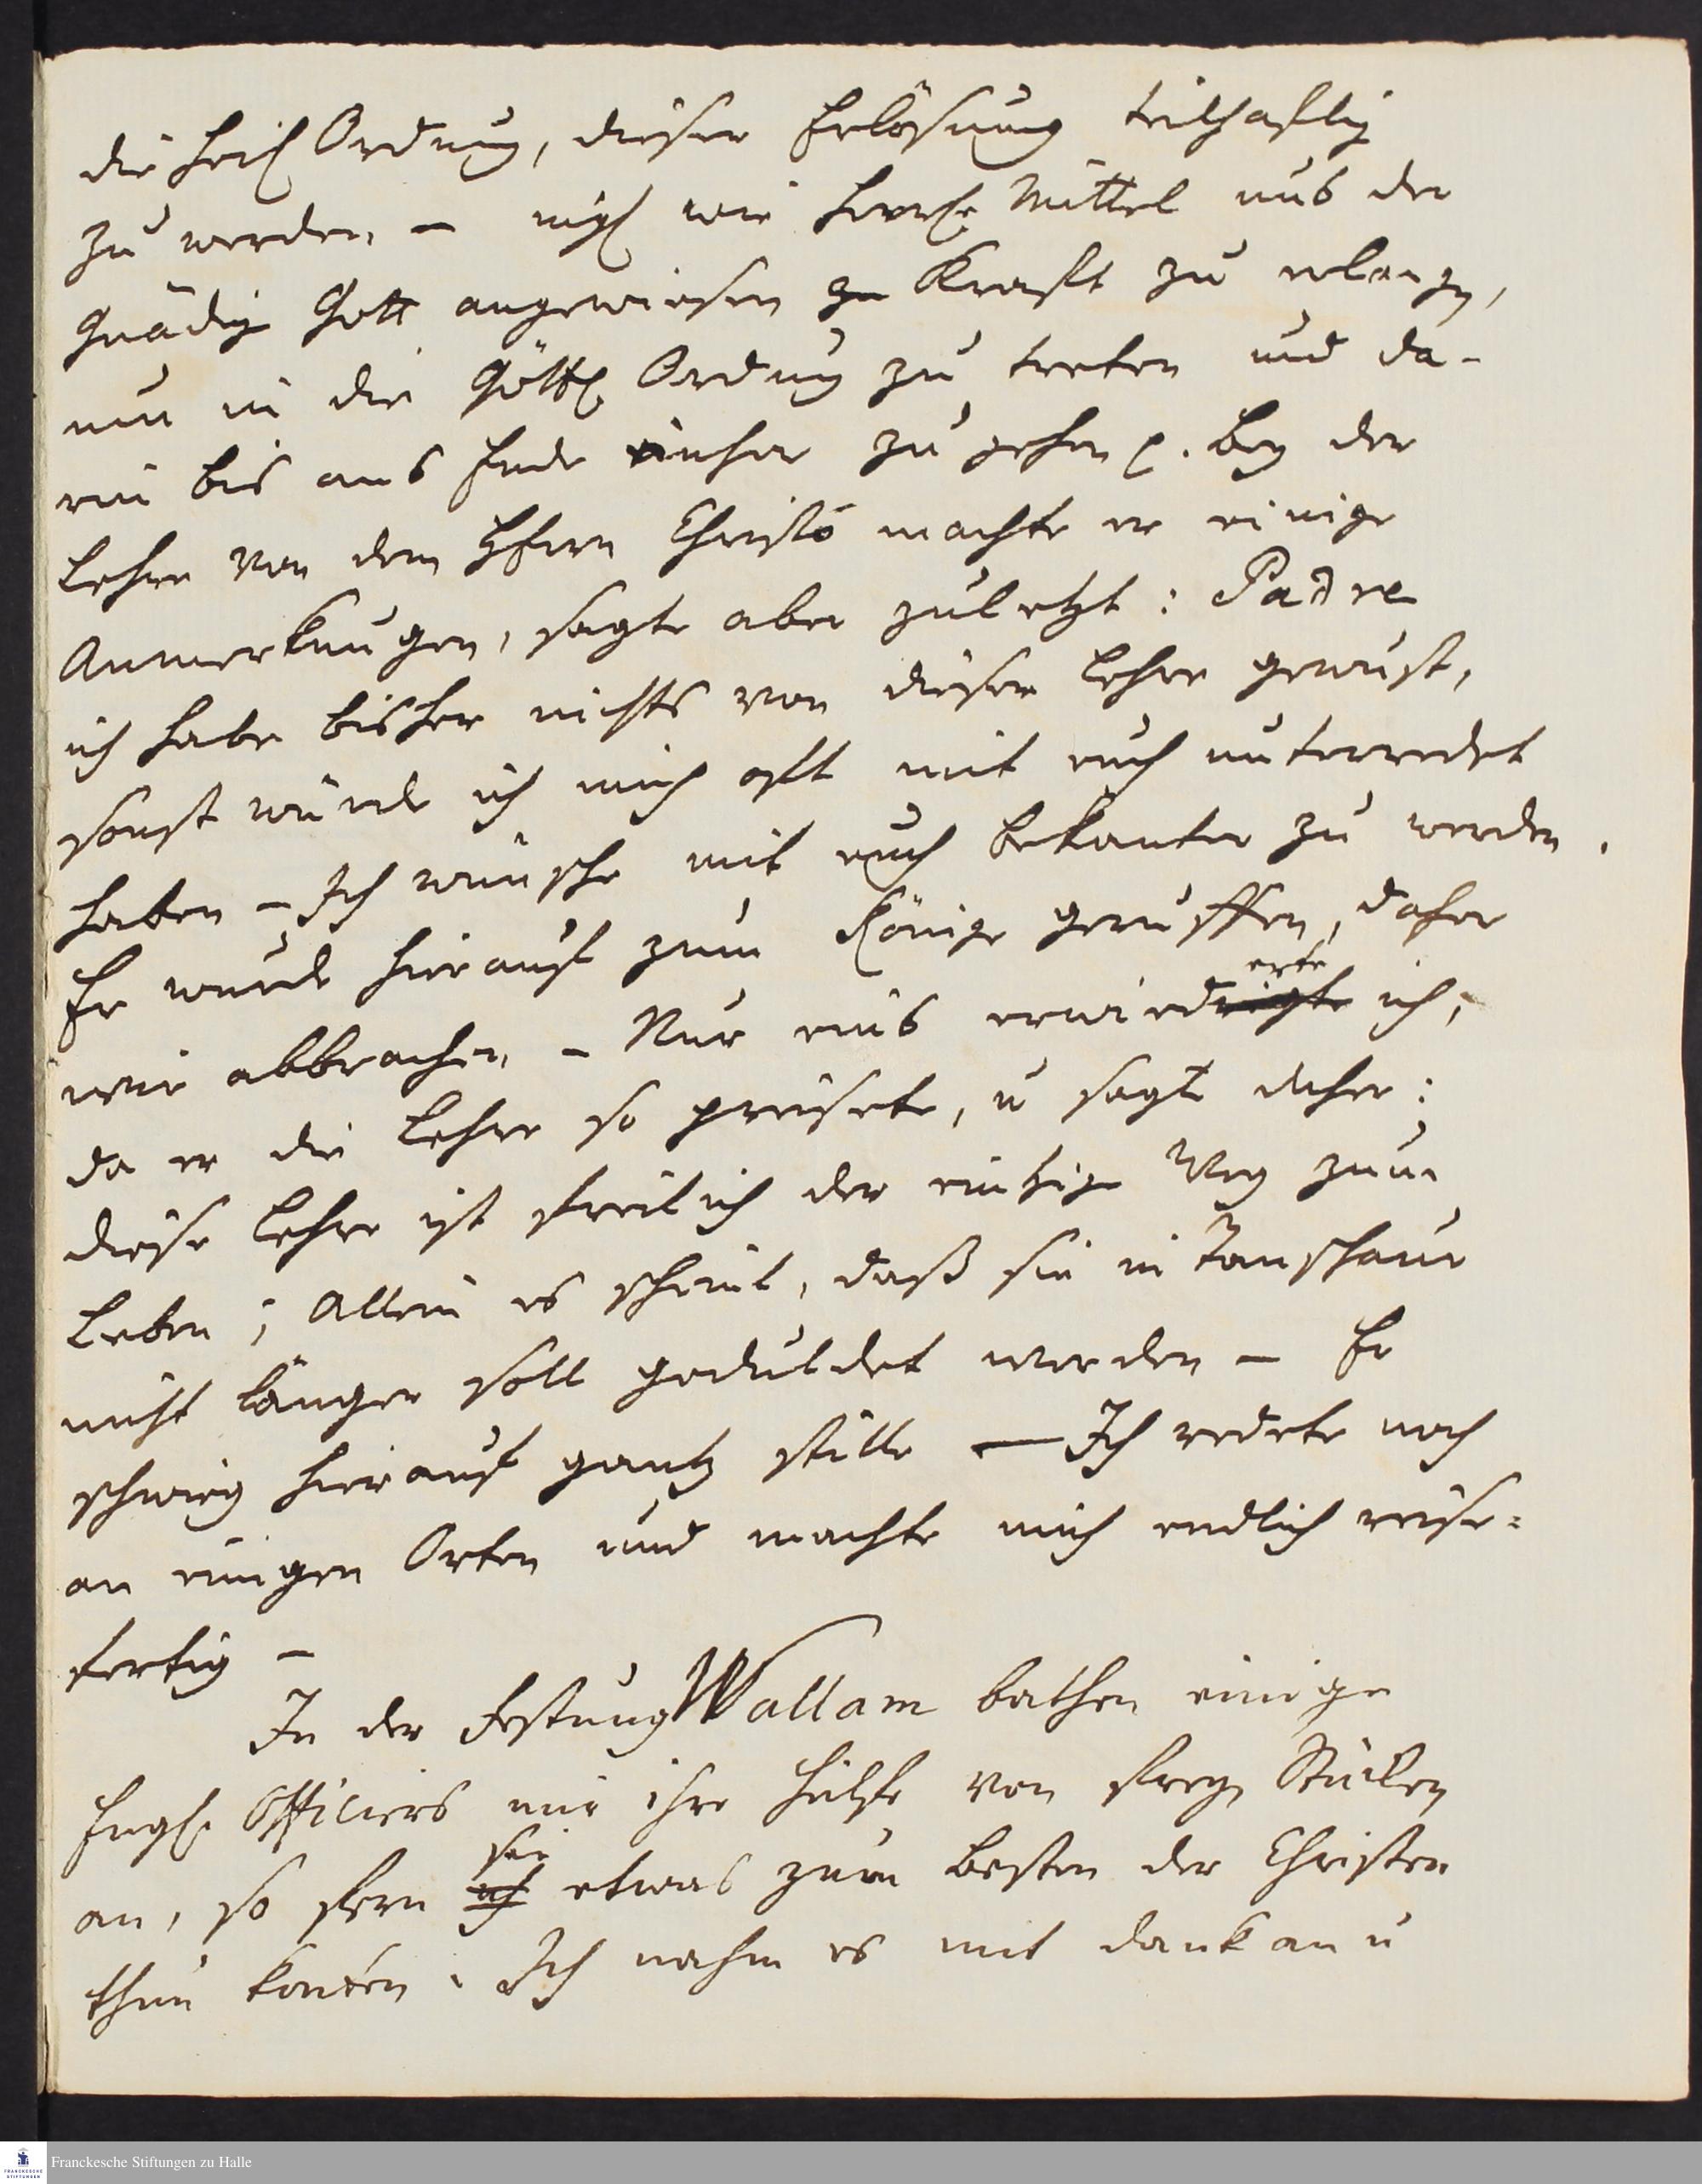 die heil Ordnung, dieser Erlösung teilhafftig
zu werden. – ingl wie herrl. Mittel uns der
Gnädige Gott angewiesen zu Krafft zu erlangen,
nun in die Göttl Ordnung zu treten und da-
rin bis ans Ende einher zu gehen p. Bey der
Lehre von dem HErrn Christo machte er einige
Anmerkungen, sagte aber zuletzt: Padre
ich habe bisher nichts von dieser Lehre gewust,
sonst würde ich mich oft mit euch unterredet
haben – Ich wünsche mit euch bekanter zu werden.
Er wurde hierauf zum Könige geruffen, daher
wir abbrachen. – Nur eins erwiedrigte erte ich,
da er die Lehre so preisete, u sagte daher:
diese Lehre ist freilich der eintzige Weg zum
Leben; Allein es scheint, daß sie in Tanschaur
nicht länger soll geduldet werden – Er
schwieg hierauf gantz stille – Ich redete noch
an einigen Orten und machte mich endlich reise=
fertig –
In der Festung Wallam bathen einige
Engl. Officiers mir ihre Hülfe von freyen Stücken
an, so fern ich sie etwas zum Besten der Christen
thun konten. Ich nahm es mit dank an u
Franckesche Stiftungen zu Halle